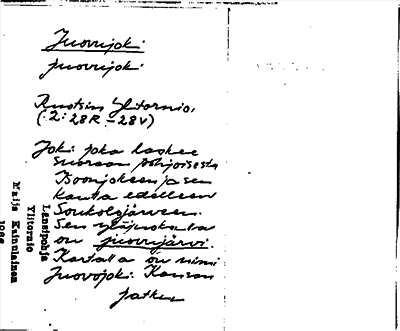 Juovujoki
juovujoki
Ruotsin Ylitornio.
(2: 28R – 28V)
Joki joka laskee
suoraan pohjoisesta
jokeen ja sen
kautta edelleen
Soukolojärveen.
Sen yläjuoksulla
on juovujärvi.
Kartalla on nimi
Juovojoki. Kansan
jatkuu
Länsipohja
Ylitornio
Maija Kainulainen
1986